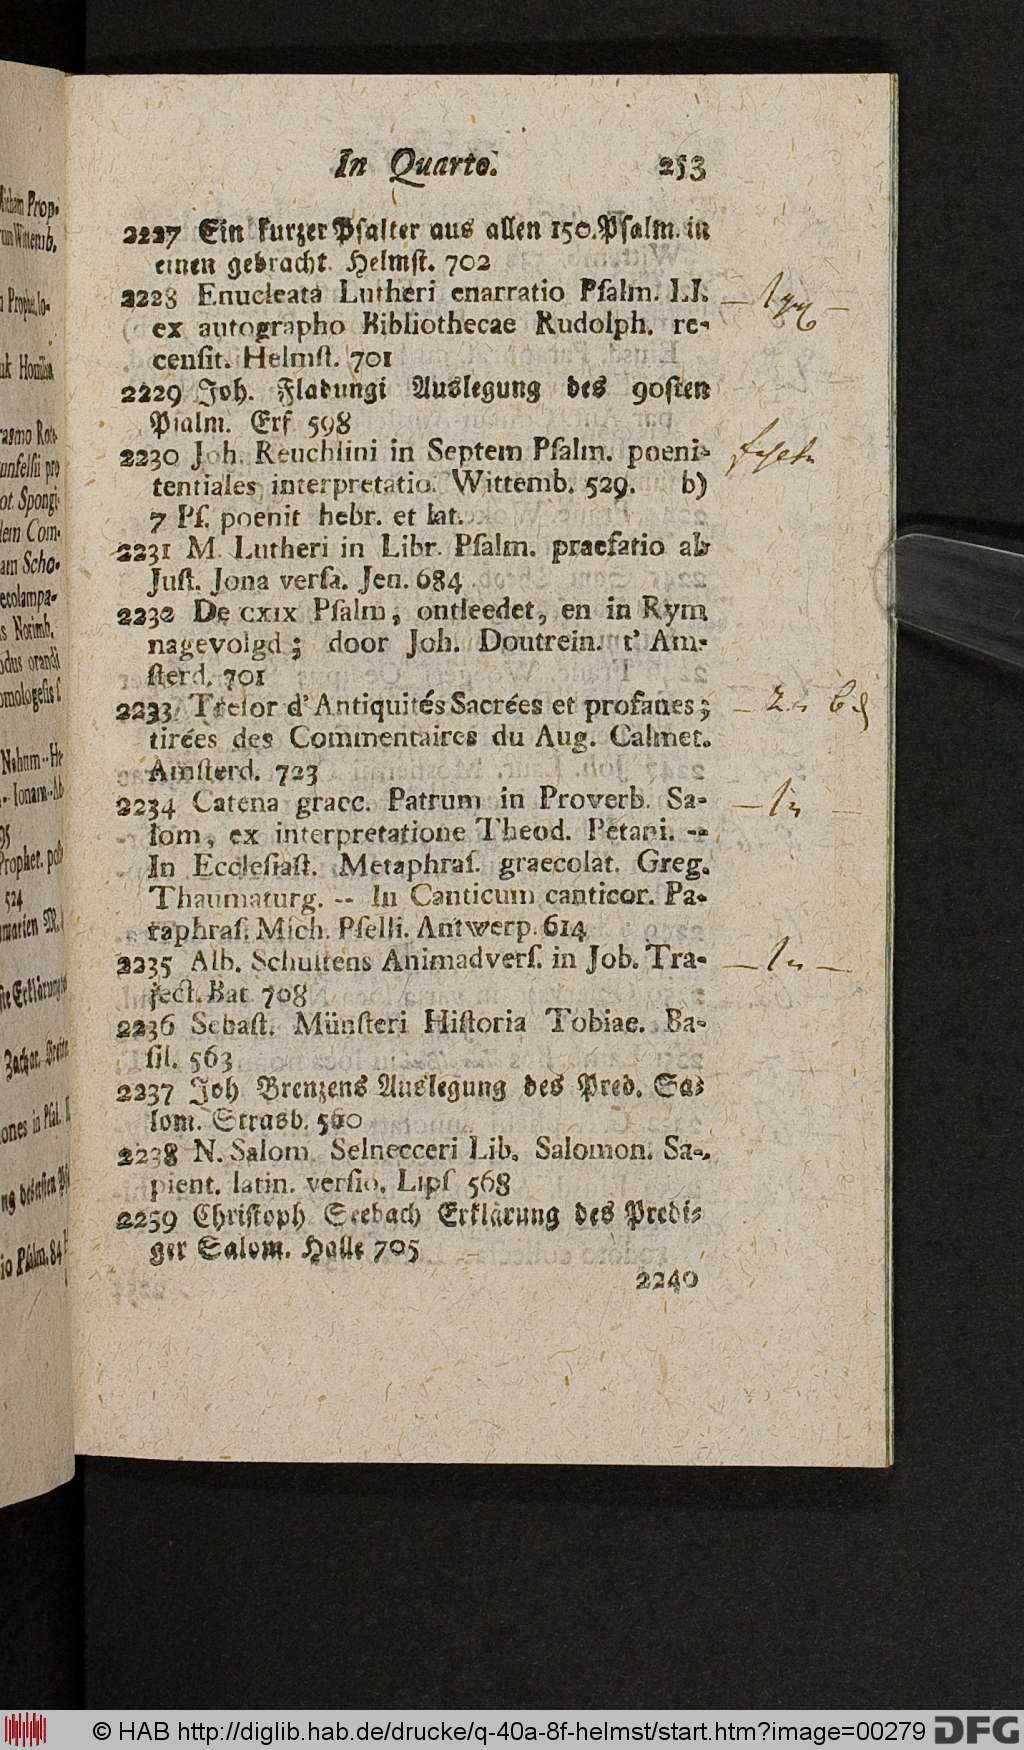 In Quarto. 253
2227 Ein kurzer Psalter aus allen 150. Psalm. in
einen gebracht. Helmst. 702
2228 Enucleata Lutheri enarratio Psalm. LI.
ex autographo Bibliothecae Rudolph. re-
censit. Helmst. 701
2229 Joh. Fladungi Auslegung des 90sten
Psalm. Erf. 598
2230 Joh. Reuchlini in Septem Psalm. poeni-
tentiales interpretatio. Wittemb. 529. b)
7 Ps. poenit hebr. et lat.
2231 M. Lutheri in Libr. Psalm. praefatio ab
Just. Jona versa. Jen. 684
2232 De CXIX Psalm, ontleedet, en in Rym
nagevolgd; door Joh. Doutrein. t' Am-
sterd. 701
2233 Tresor d'Antiquités Sacrées et profanes;
tirées des Commentaires du Aug. Calmet.
Amsterd. 723
2234 Catena graec. Patrum in Proverb. Sa-
lom, ex interpretatione Theod. Petani. --
In Ecclesiast. Metaphras. graecolat. Greg.
Thaumaturg. -- In Canticum canticor. Pa-
raphras. Mich. Pselli. Antwerp. 614
2235 Alb. Schultens Animadvers. in Job. Tra-
ject. Bat 708
2236 Sebast. Münsteri Historia Tobiae. Ba-
sil. 563
2237 Joh Brenzens Auslegung des Pred. Sa-
lom. Strasb. 560
2238 N. Salom. Selnecceri Lib. Salomon. Sa-
pient. latin. versio. Lips 568
2259 Christoph Seebach Erklärung des Predi-
ger Salom. Halle 705
2240
© HAB http://diglib.hab.de/drucke/q-40a-8f-helmst/start.htm?image=00279
DFG